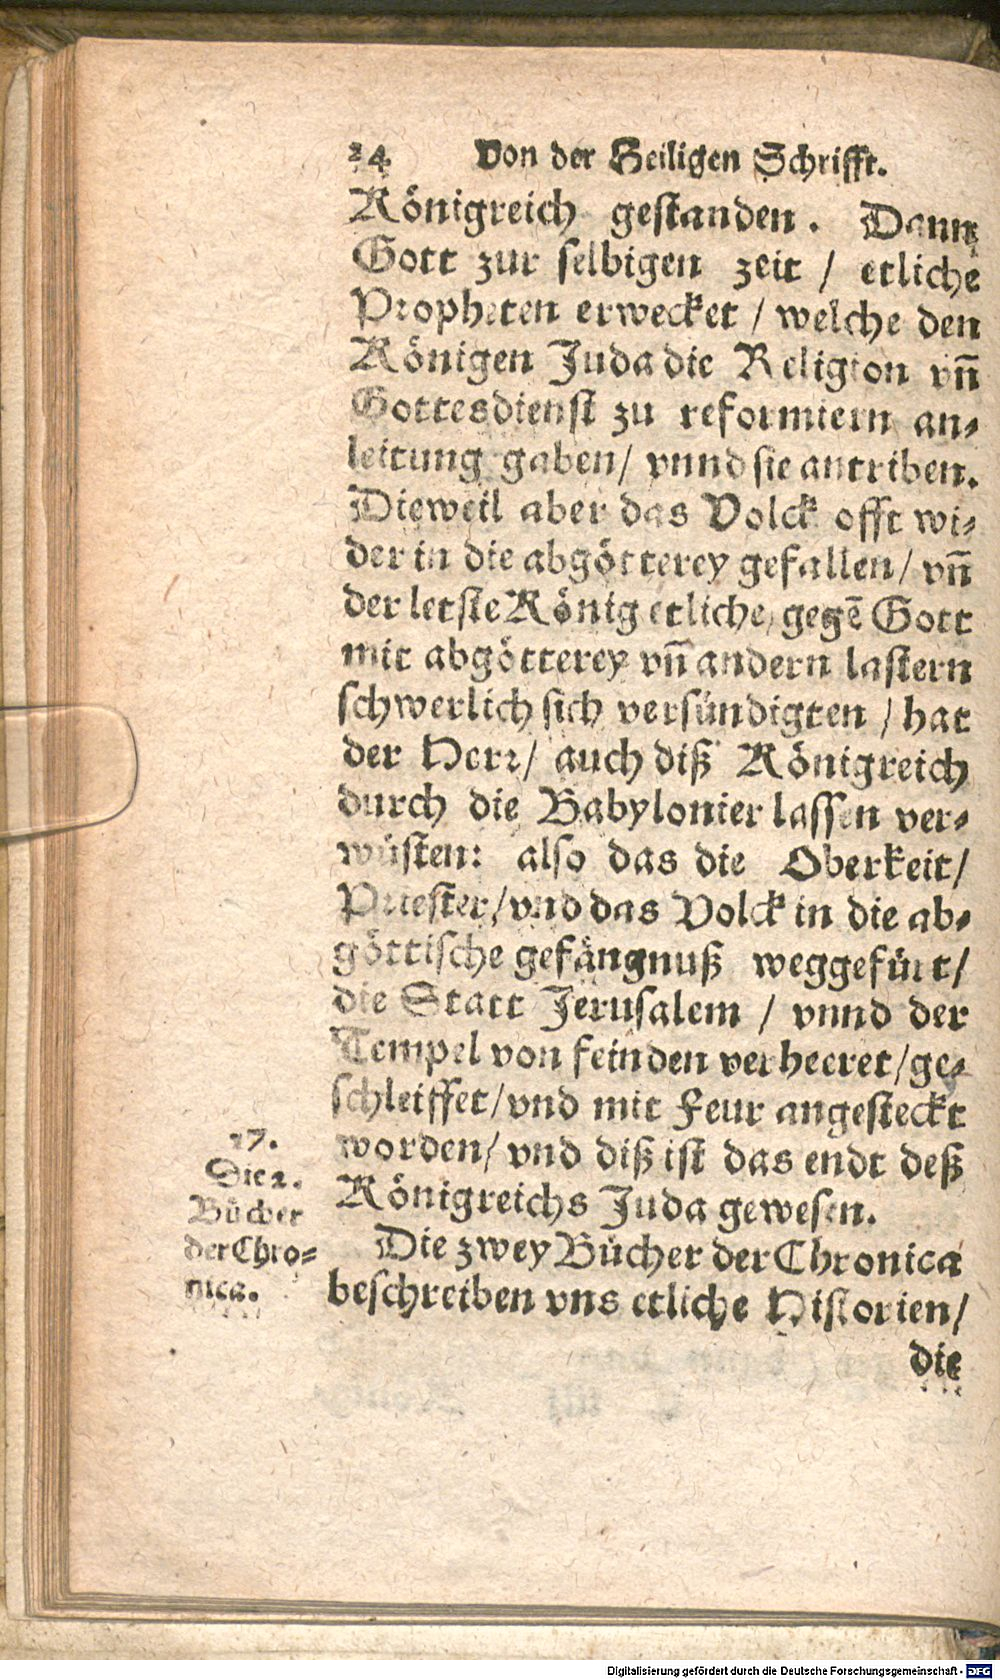 24 Von der Heiligen Schrifft.
Königreich gestanden. Dann
Gott zur selbigen zeit / etliche
Propheten erwecket / welche den
Königen Juda die Religion vn̄
Gottesdienst zu reformiern an⸗
leitung gaben / vnnd sie antriben.
Dieweil aber das Volck offt wi⸗
der in die abgötterey gefallen / vn̄
der letste König etliche gegē Gott
mit abgötterey vn̄ andern lastern
schwerlich sich versündigten / hat
der Herr / auch diß Königreich
durch die Babylonier lassen ver⸗
wüsten: also das die Oberkeit /
Priester / vnd das Volck in die ab⸗
göttische gefängnuß weggefürt /
die Statt Jerusalem / vnnd der
Tempel von feinden verheeret / ge⸗
schleiffet / vnd mit Feur angesteckt
worden / vnd diß ist das endt deß
Königreichs Juda gewesen.
17.
Die 2.
Bücher
der Chro⸗
nica.
Die zwey Bücher der Chronica
beschreiben vns etliche Historien /
die
Digitalisierung gefördert durch die Deutsche Forschungsgemeinschaft - DFG